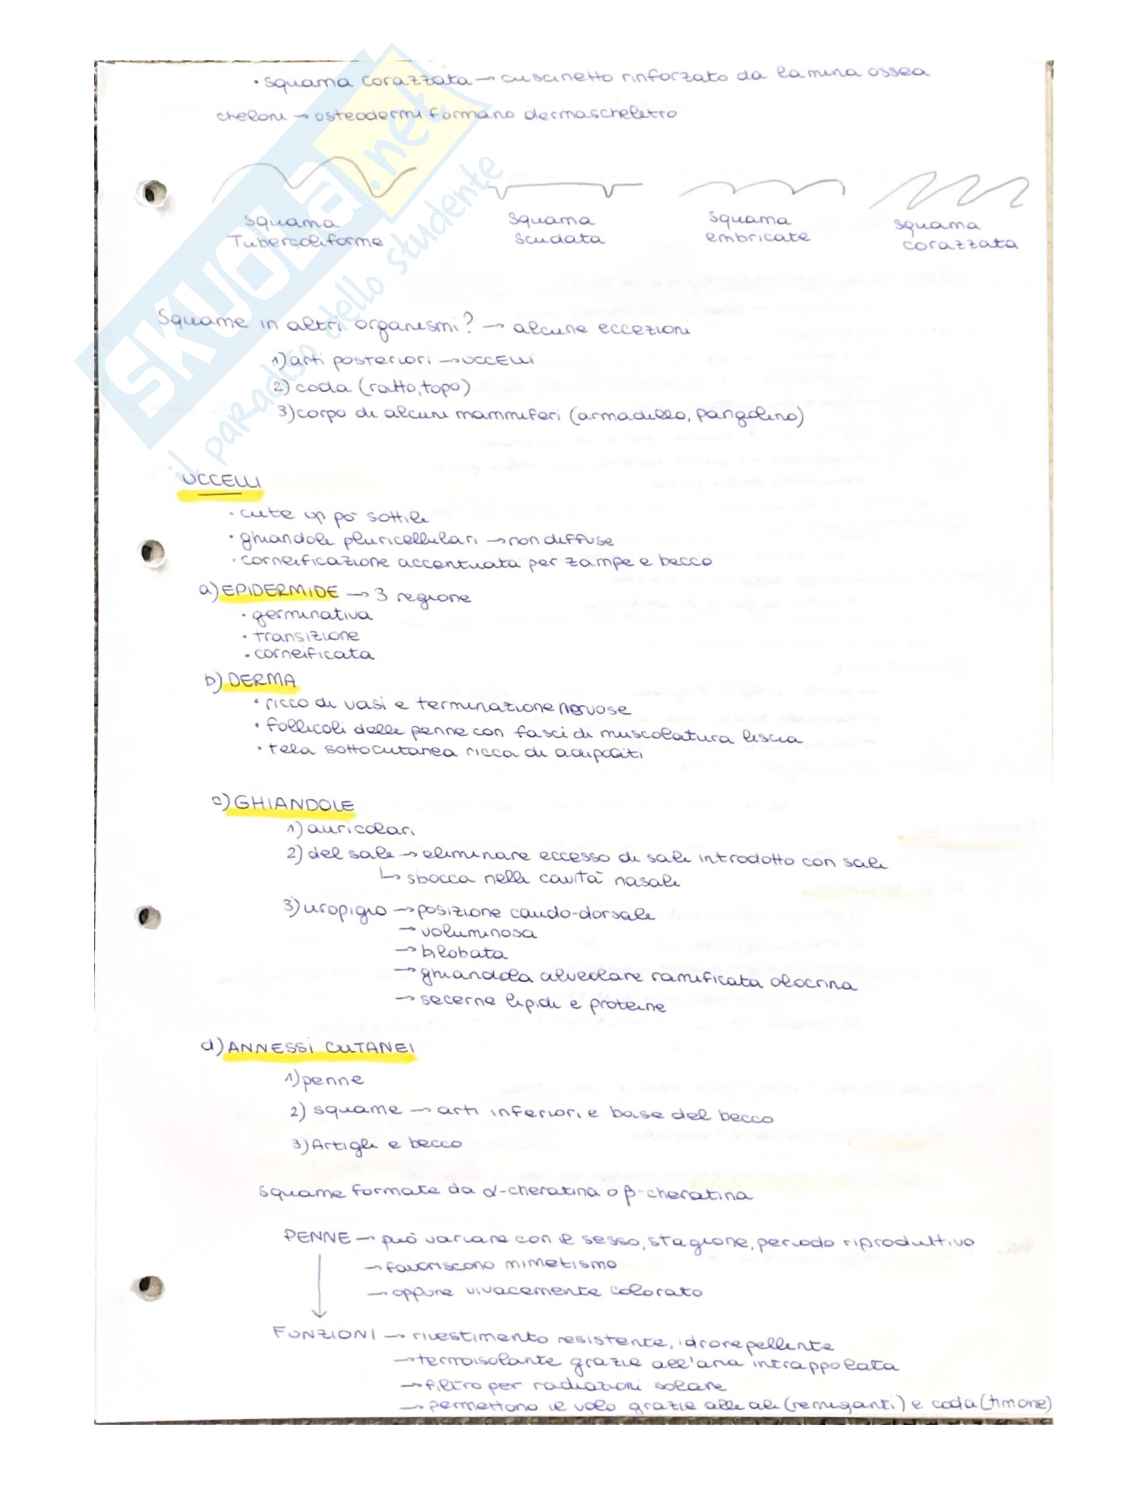 • squama corazzata → cuscinetto rinforzato da lamina ossea
cheloni → osteodermi formano dermascheletro
squama Tubercoliforme
squama scudata
squama embricate
squama corazzata
Squame in altri organismi? → alcune eccezioni
1) arti posteriori → uccelli
2) coda (ratto, topo)
3) corpo di alcuni mammiferi (armadillo, pangolino)
UCCELLI
• cute un po' sottile
• ghiandole pluricellulari → non diffuse
• corneificazione accentuata per zampe e becco
a) EPIDERMIDE → 3 regione
• germinativa
• transizione
• corneificata
b) DERMA
• ricco di vasi e terminazione nervose
• follicoli delle penne con fasci di muscolatura liscia
• tela sottocutanea ricca di adipociti
c) GHIANDOLE
1) auricolari
2) del sale → eliminare eccesso di sale introdotto con sale
↳ sbocca nelle cavità nasale
3) uropigio → posizione caudo-dorsale
→ voluminosa
→ bilobata
→ ghiandola alveolare ramificata olocrina
→ secerne lipidi e proteine
d) ANNESSI CUTANEI
1) penne
2) squame → arti inferiori e base del becco
3) Artigli e becco
squame formate da α-cheratina o β-cheratina
PENNE → può variare con il sesso, stagione, periodo riproduttivo
→ favoriscono mimetismo
→ oppure vivacemente colorato
FUNZIONI → rivestimento resistente, idrorepellente
→ termoisolante grazie all'aria intrappolata
→ filtro per radiazioni solare
→ permettono il volo grazie alle ali (remiganti) e coda (timone)
SKUOLA.net
il paradiso dello studente